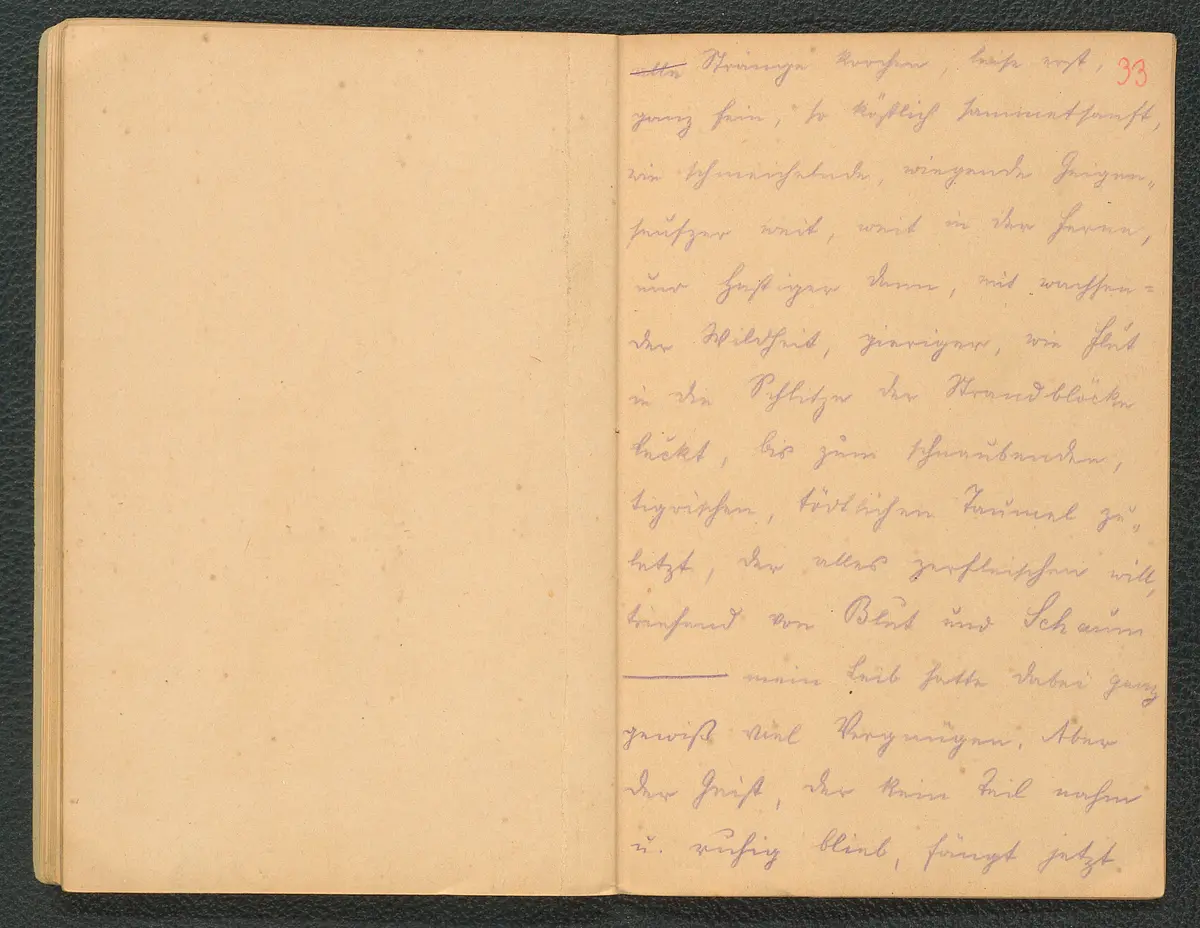 alle Stränge krochen, leise erst, 33
ganz fein, so köstlich sammetsanft,
wie schmeichelnde, wiegende Geigen-
seufzer weit, weit in der Ferne,
und hastiger dann, mit wachsen-
der Wildheit, gieriger, wie Flut
in die Schlitze der Strandblöcke
leckt, bis zum schnaubenden,
tigrischen, tödlichen Taumel zu-
letzt, der alles zerfleischen will,
triefend von Blut und Schaum
— mein Leib hatte dabei ganz
gewiß viel Vergnügen. Aber
der Geist, der kein Teil nahm
u. ruhig blieb, fängt jetzt